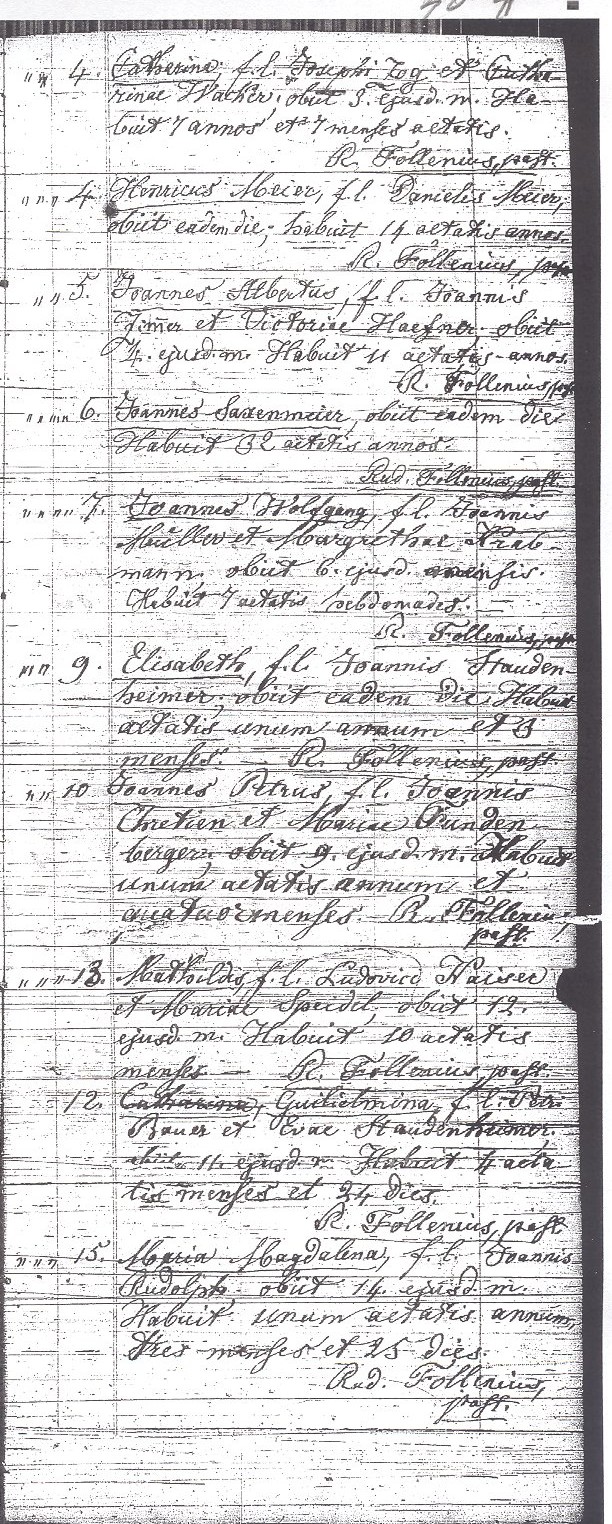 " " 4. Catherina, f. l. Josephi Zog et Catha-
rinae Walker, obiit 3. ejusd. m. Ha-
buit 7 annos et 7 menses aetatis.
R. Follenius, past.
" " " 4 Henricus Meier, f. l. Danielis Meier,
obiit eadem die; habuit 14 aetatis annos.
R. Follenius, past.
" " 5. Joannes Albertus, f. l. Joannis
et Victoriae Haefner obiit
4. ejusd. m. Habuit 11 aetatis annos.
R. Follenius, past.
" " " " 6. Joannes Saxenmeier, obiit eadem die
Habuit 32 aetatis annos.
Rud. Follenius, past.
" " " " 7. Joannes Wolfgang, f. l. Joannis
Müller et Margrethae
mann, obiit 6. ejusd. mensis.
Habuit 7 aetatis hebdomades.
R. Follenius, past.
" " " 9. Elisabeth, f. l. Joannis Stauden-
heimer; obiit eadem die. Habuit
aetatis unum annum et 3
menses. — R. Follenius, past.
" " 10 Joannes Petrus, f. l. Joannis
Chretien et Mariae Punden
berger; obiit 9. ejusd. m. Habuit
unum aetatis annum et
quatuor menses. R. Follenius,
past.
" " " 13. Mathildis, f. l. Ludovici Kaiser
et Mariae Speidel, obiit 12.
ejusd. m. Habuit 10 aetatis
menses — R. Follenius, past.
12. Catharina, Guilielmina, f. l. Petr.
Bauer et Evae Staudenheimer,
obiit 11. ejusd. m. Habuit 4 aeta
tis menses et 24 dies.
R. Follenius, past.
" " " 15. Maria Magdalena, f. l. Joannis
Rudolph obiit 14. ejusd. m.
Habuit unum aetatis annum,
tres menses et 25 dies.
Rud. Follenius,
past.